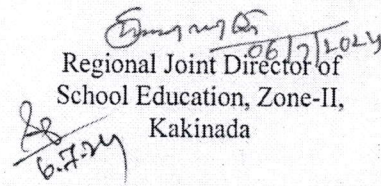 06/7/2024
Regional Joint Director of
School Education, Zone-II,
Kakinada
6.7.24